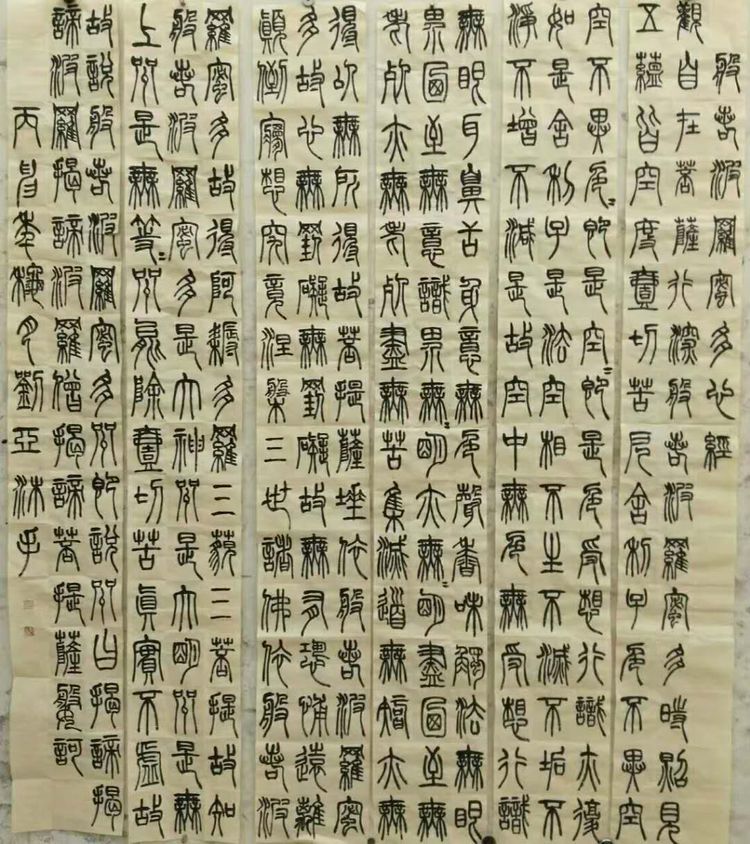 般若波羅蜜多心經
觀自在菩薩行深般若波羅蜜多時照見
五蘊皆空度一切苦厄舍利子色不異空
空不異色〻即是空〻即是色受想行識亦復
如是舍利子是法空相不生不滅不垢不
淨不增不減是故空中無色無受想行識
無眼耳鼻舌身意無色聲香味觸法無眼
界乃至無意識界無〻明亦無〻明盡乃至無
老死亦無老死盡無苦集滅道無智亦無
得以無所得故菩提薩埵依般若波羅蜜
多故心無罣礙無罣礙故無有恐怖遠離
顛倒夢想究竟涅槃三世諸佛依般若波
羅蜜多故得阿耨多羅三藐三菩提故知
般若波羅蜜多是大神咒是大明咒是無
上咒是無等〻咒能除一切苦真實不虛故
故說般若波羅蜜多咒即說咒曰揭諦揭
諦波羅揭諦波羅僧揭諦菩提薩婆訶
丙申年月劉亞手